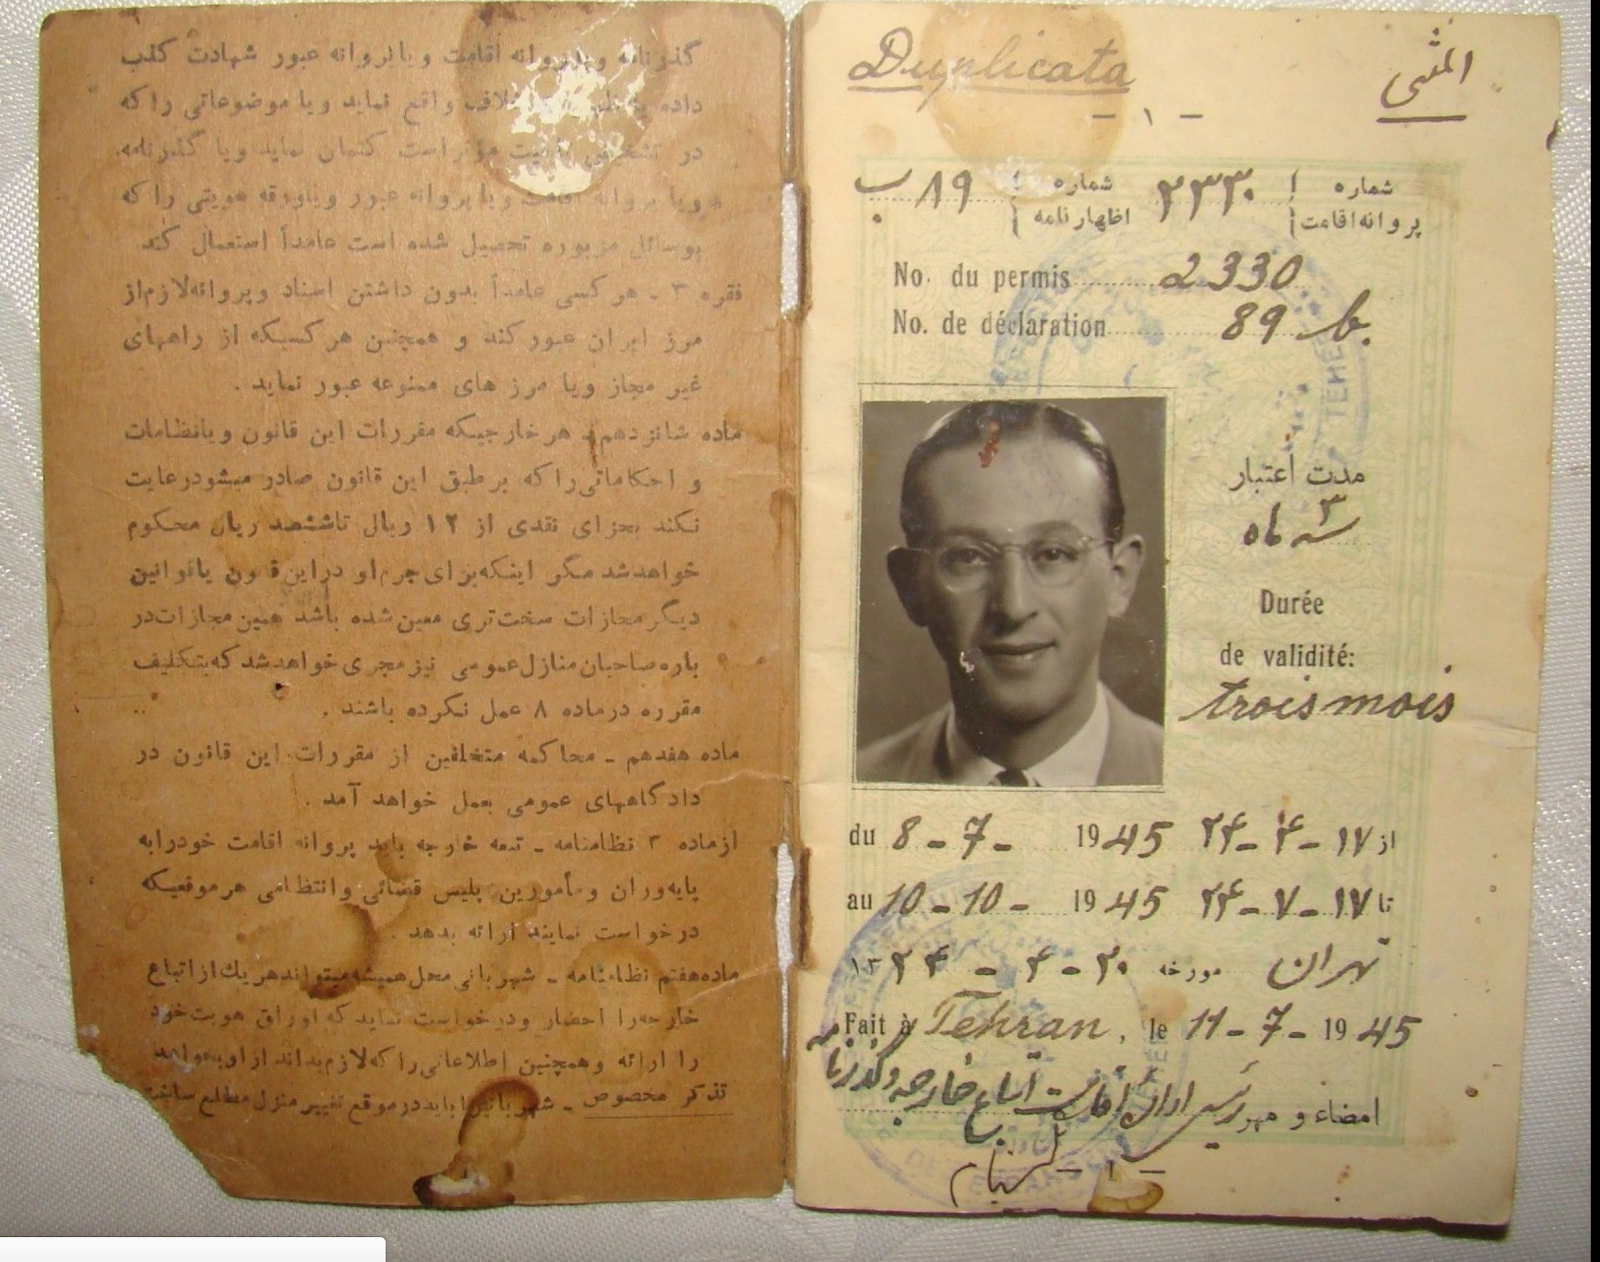 گذرنامه و یا پروانه اقامت و یا پروانه عبور شهادت کذب
داده خلاف واقع نماید و یا موضوعاتی را که
در تشخیص مؤثر است کتمان نماید و یا گذرنامه
و یا پروانه اقامت و یا پروانه عبور و یا ورقه هویتی را که
بوسائل مزبوره تحصیل شده است عامداً استعمال کند
فقره ۳ ـ هر کسی عامداً بدون داشتن اسناد و پروانه لازم از
مرز ایران عبور کند و همچنین هر کسیکه از راههای
غیر مجاز و یا مرز های ممنوعه عبور نماید .
ماده شانزدهم ـ هر خارجیکه مقررات این قانون و یا نظامات
و احکاماتی را که بر طبق این قانون صادر میشود رعایت
نکند بجزای نقدی از ۱۲ ریال تا ششصد ریال محکوم
خواهد شد مگر اینکه برای جرم او در این قانون یا قوانین
دیگر مجازات سخت تری معین شده باشد همین مجازات در
باره صاحبان منازل عمومی نیز مجری خواهد شد که بتکلیف
مقرره در ماده ۸ عمل نکرده باشند .
ماده هفدهم ـ محاکمه متخلفین از مقررات این قانون در
دادگاههای عمومی بعمل خواهد آمد .
از ماده ۲ نظامنامه ـ تبعه خارجه باید پروانه اقامت خود را به
پایه وران و مأمورین پلیس قضائی و انتظامی هر موقعیکه
درخواست نمایند ارائه بدهد .
ماده هفتم نظامنامه ـ شهربانی محل همیشه میتواند هر یك از اتباع
خارجه را احضار و درخواست نماید که اوراق هویت خود
را ارائه و همچنین اطلاعاتی را که لازم بداند از او بخواهد
تذکر مخصوص ـ شهربانی را باید در موقع تغییر منزل مطلع ساخت
Duplicata المثنی
– ۱ –
شماره پروانه اقامت ۲۳۳۰ شماره اظهارنامه ۸۹ ب
No. du permis 2330
No. de déclaration 89 b.
مدت اعتبار
۳ سه ماه
Durée
de validité:
trois mois
du 8 - 7 - 1945 از ۱۷ - ۴ - ۲۴
au 10 - 10 - 1945 تا ۱۷ - ۷ - ۲۴
تهران مورخه ۲۰ - ۴ - ۱۳۲۴
Fait à Tehran, le 11 - 7 - 1945
امضاء و مهر رئیس اداره اقامت اتباع خارجه و گذرنامه
– ۱ –